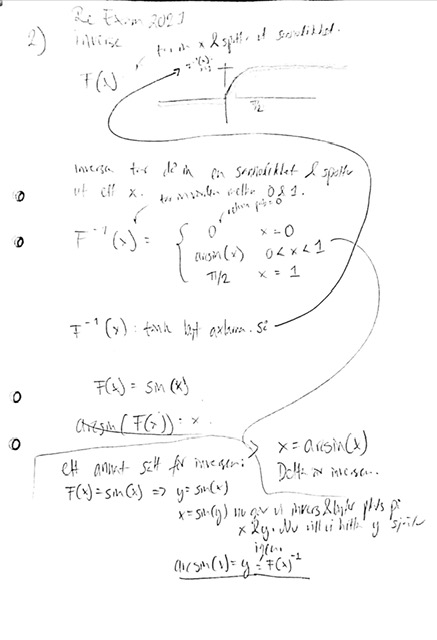 Re Exam 2021
2) inverse
tar in x & spottar ut sannolikhet.
F(x)
π/2
inversen tar då in en sannolikhet & spottar
ut ett x. tar in värden mellan 0 & 1.
F⁻¹(x) = { 0 x = 0
arcsin(x) 0 < x < 1
π/2 x = 1
F⁻¹(x): tänk byt axlarna. se
F(x) = sin(x)
arcsin(F(x)) = x
x = arcsin(x)
Detta är inversen.
ett annat sätt för inversen:
F(x) = sin(x) => y = sin(x)
x = sin(y) nu tar vi invers & byter plats på
x & y. Nu vill vi hitta y
igen.
arcsin(x) = y = F(x)⁻¹